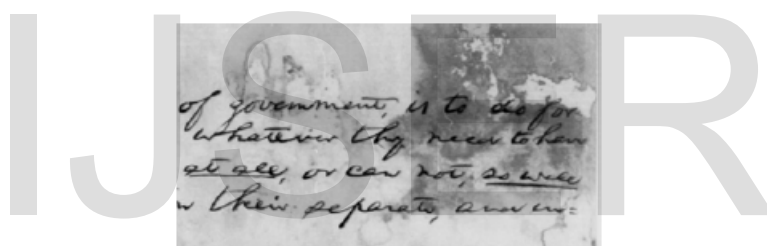 IJSER
of government, is to do for
whatever they need to have
at all, or can not, so well
in their separate, and in=